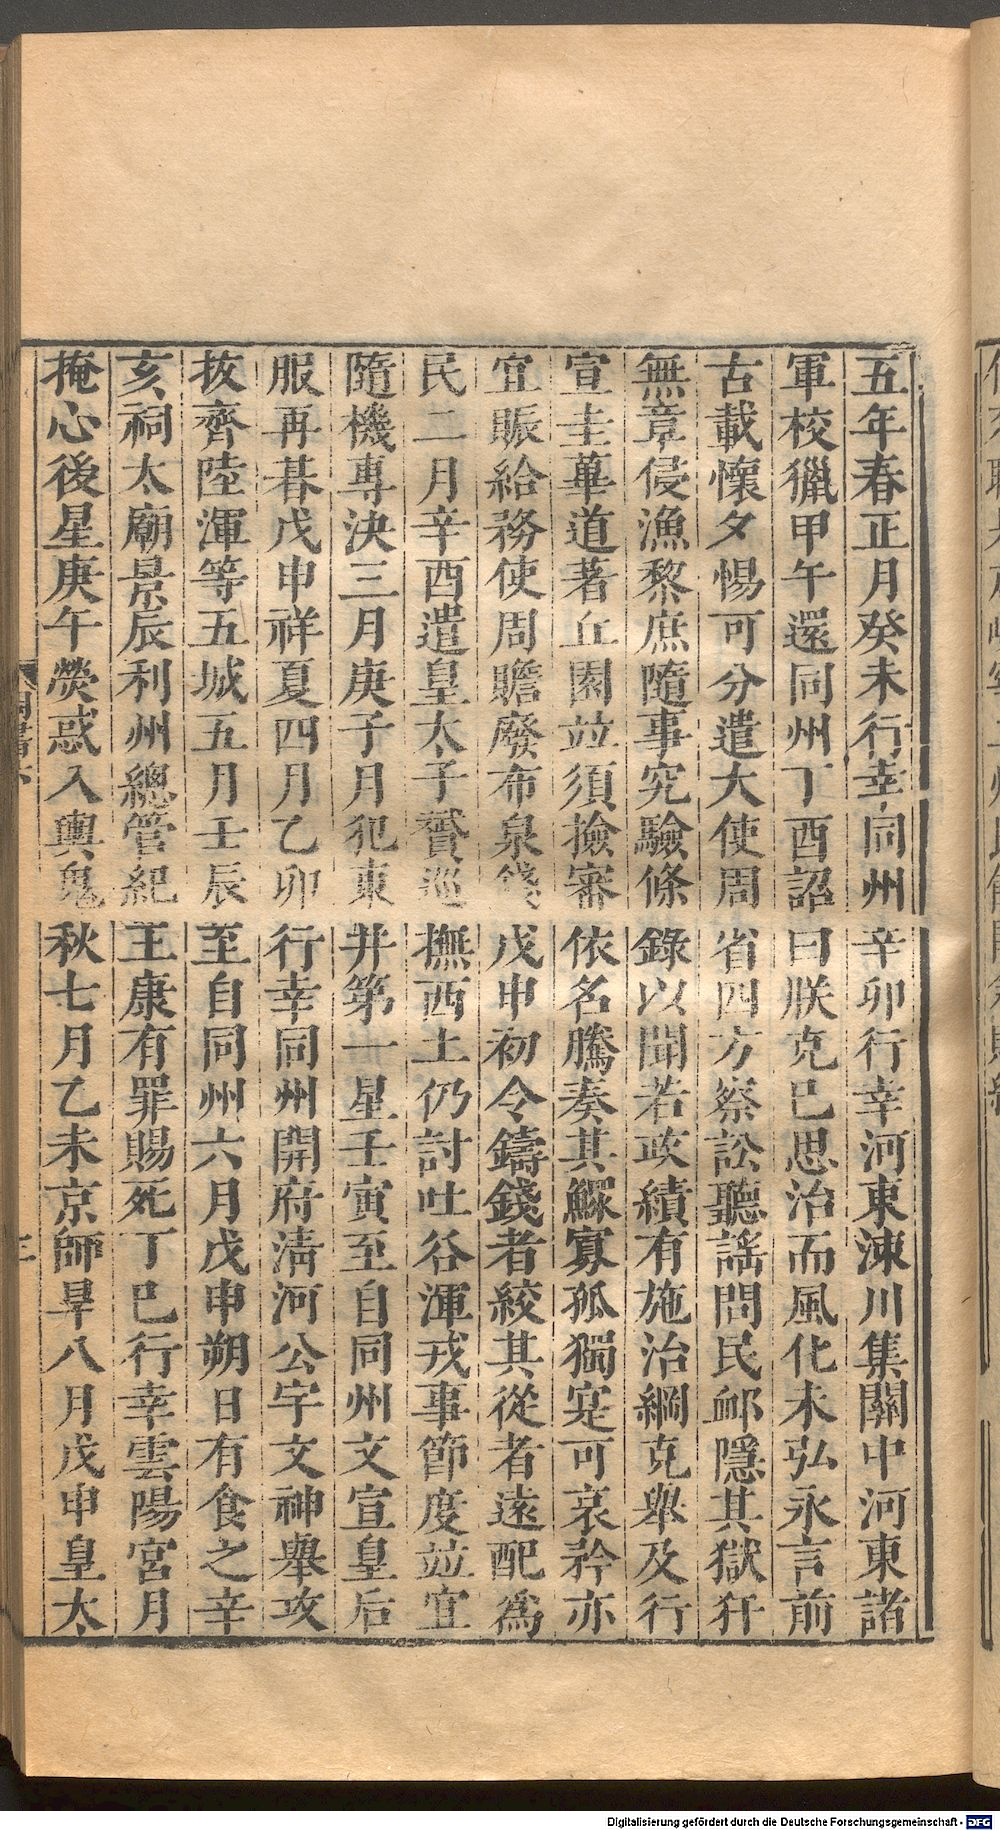 五年春正月癸未行幸同州辛卯行幸河東涑川集關中河東諸
軍校獵甲午還同州丁酉詔曰朕克己思治而風化未弘永言前
古載懷夕惕可分遣大使周省四方察訟聽謠問民卹隱其獄犴
無章侵漁黎庶隨事究驗條錄以聞若政績有施治綱克舉及行
宣圭蓽道著丘園竝須撿審依名騰奏其鰥寡孤獨寔可哀矜亦
宜賑給務使周贍廢布泉錢戊申初令鑄錢者絞其從者遠配爲
民二月辛酉遣皇太子贇巡撫西土仍討吐谷渾戎事節度竝宜
隨機專決三月庚子月犯東井第一星壬寅至自同州文宣皇后
服再朞戊申祥夏四月乙卯行幸同州開府清河公宇文神舉攻
拔齊陸渾等五城五月壬辰至自同州六月戊申朔日有食之辛
亥祠太廟景辰利州總管紀王康有罪賜死丁巳行幸雲陽宮月
掩心後星庚午熒惑入輿鬼秋七月乙未京師旱八月戊申皇太
Digitalisierung gefördert durch die Deutsche Forschungsgemeinschaft - DFG